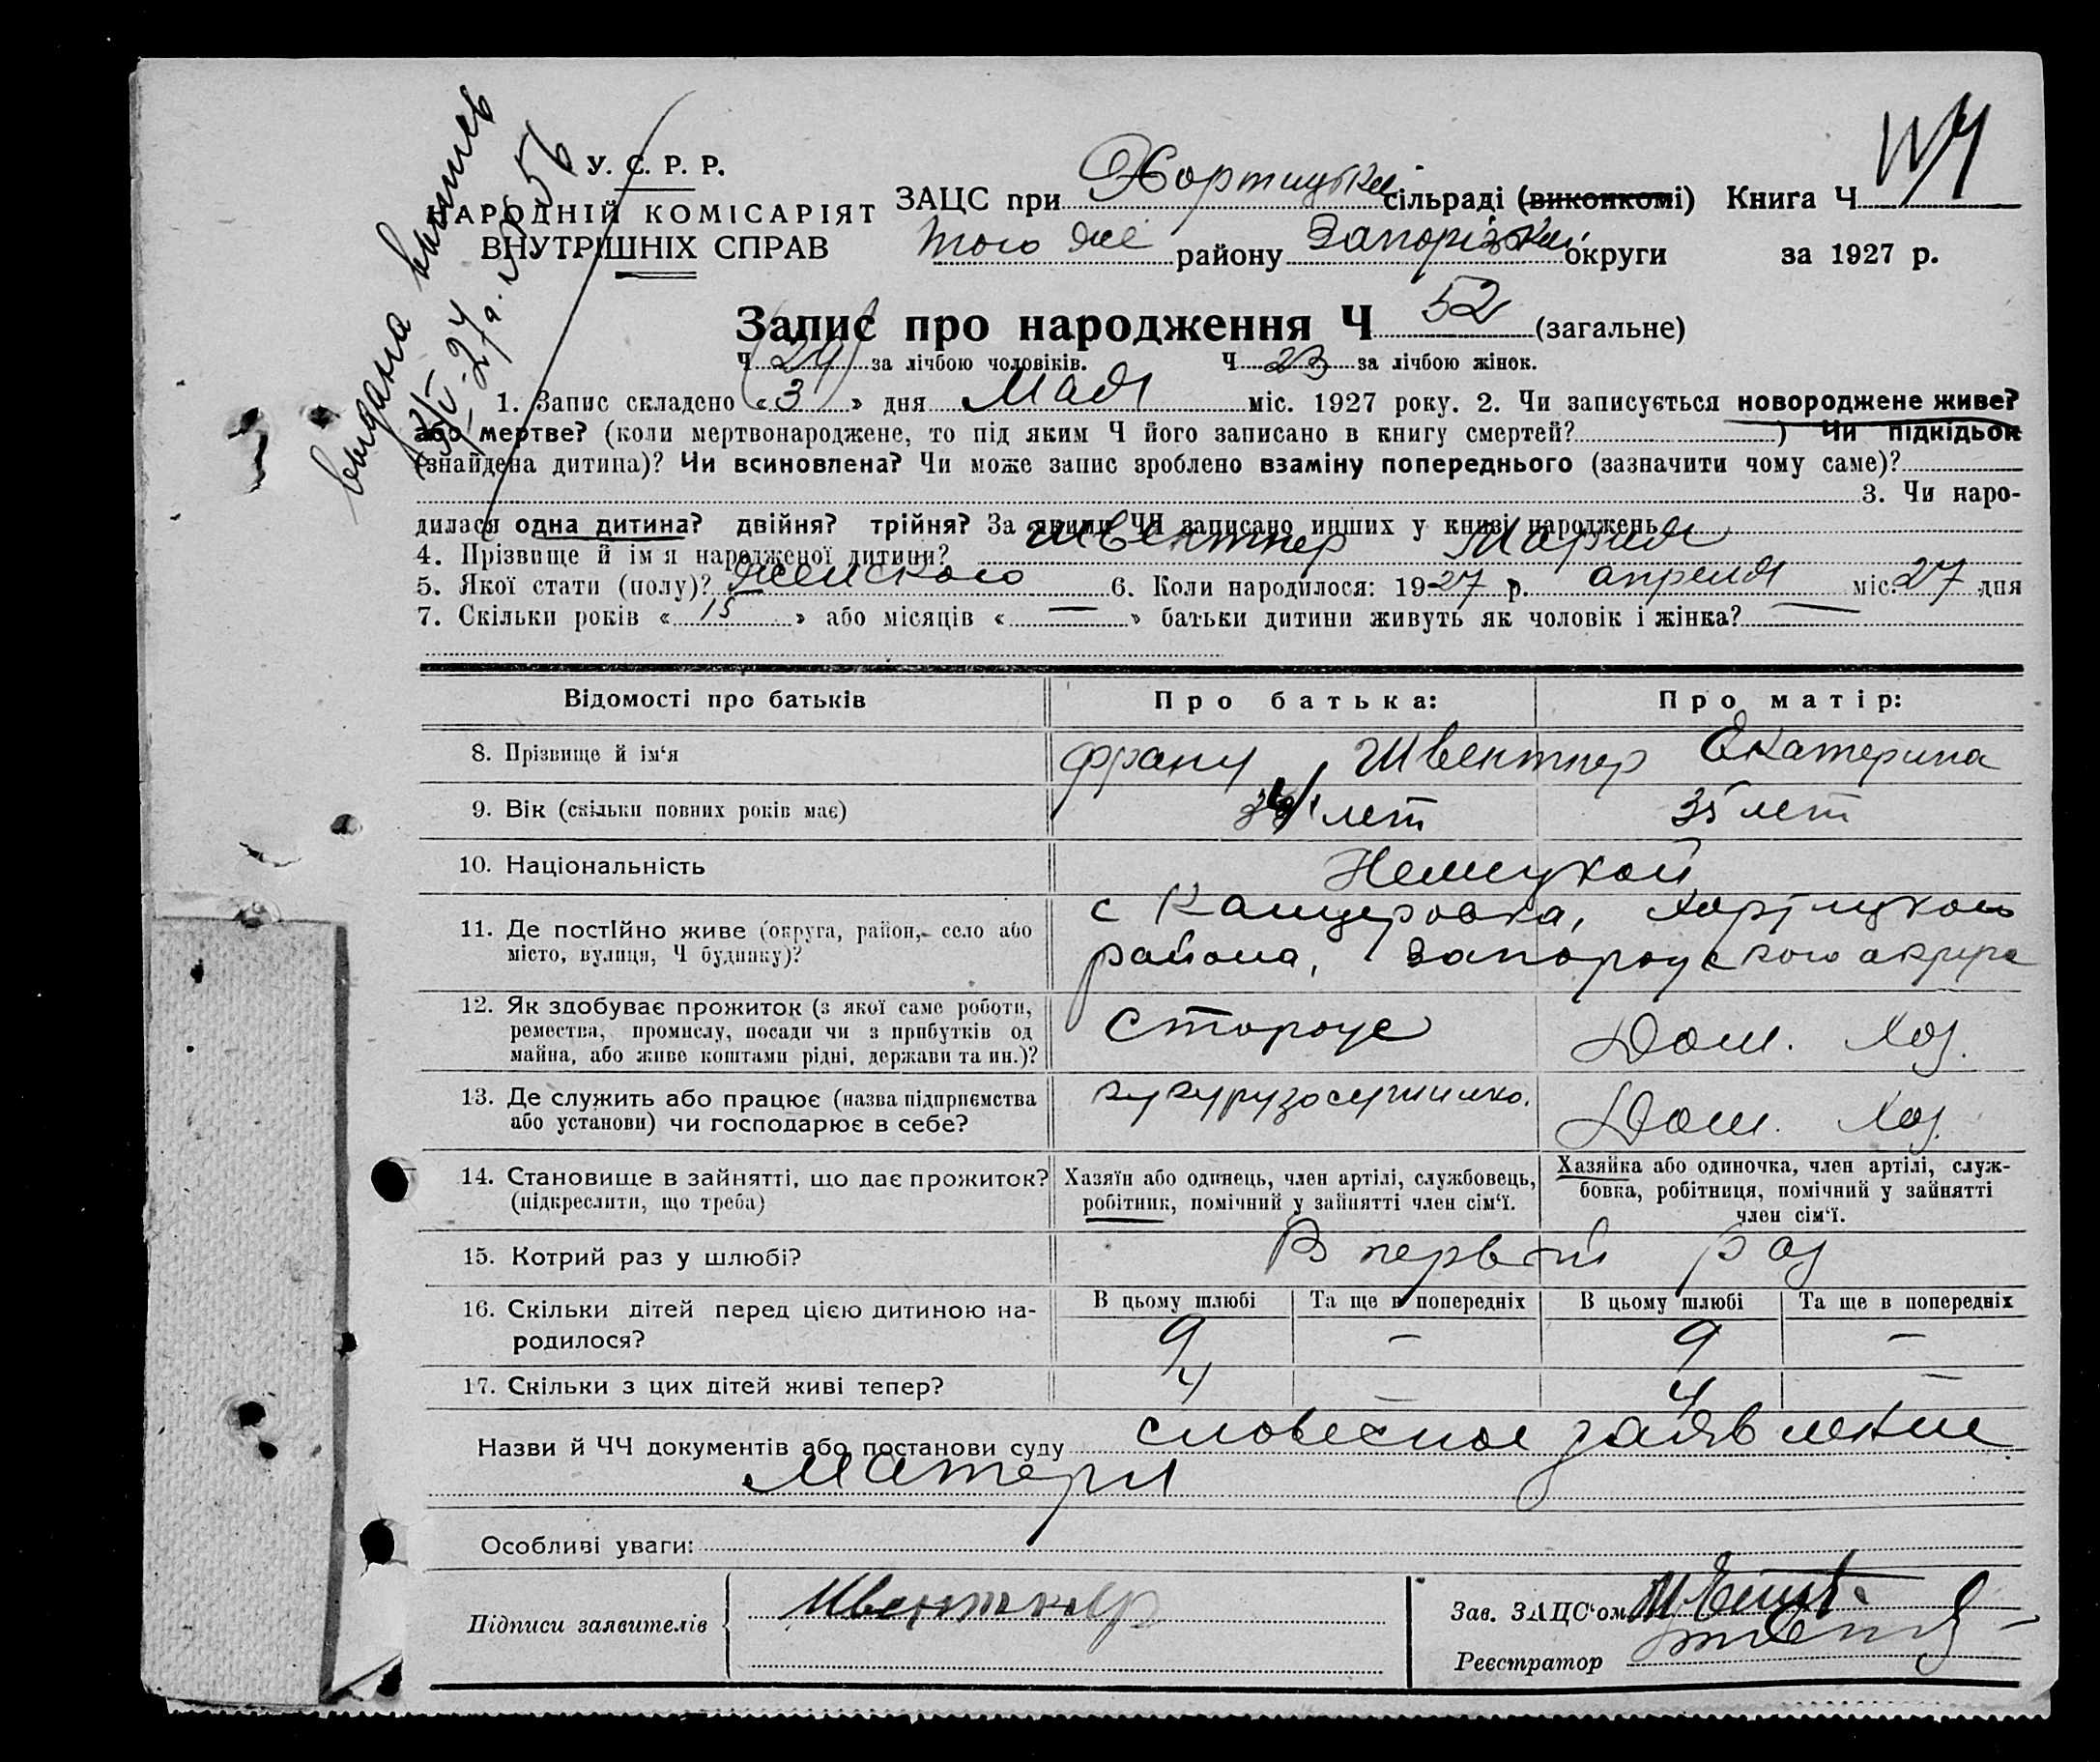 выдана выпись
3/V-27 г. № 56
У. С. Р. Р.
НАРОДНІЙ КОМІСАРІЯТ
ВНУТРІШНІХ СПРАВ
ЗАЦС при Хортицькій сільраді (виконкомі) Книга Ч
того же району Запорізької округи за 1927 р.
Запис про народження Ч 52 (загальне)
Ч (29) за лічбою чоловіків. Ч 23 за лічбою жінок.
1. Запис складено «3» дня Мая міс. 1927 року. 2. Чи записується новороджене живе?
або мертве? (коли мертвонароджене, то під яким Ч його записано в книгу смертей? ) Чи підкідьок
(знайдена дитина)? Чи всиновлена? Чи може запис зроблено взаміну попереднього (зазначити чому саме)?
3. Чи наро-
дилася одна дитина? двійня? трійня? За якими ЧЧ записано инших у книзі народжень
4. Прізвище й ім'я народженої дитини? Швентнер Мария
5. Якої стати (полу)? Женского 6. Коли народилося: 1927 р. апреля міс. 27 дня
7. Скільки років «15» або місяців «—» батьки дитини живуть як чоловік і жінка? —
Відомості про батьків Про батька: Про матір:
8. Прізвище й ім'я Франц Швентнер Екатерина
9. Вік (скільки повних років має) лет 35 лет
10. Національність Немецкой
11. Де постійно живе (округа, район, село або с Канцеровка, Хортицкого
місто, вулиця, Ч будинку)? района, Запорожского округа
12. Як здобуває прожиток (з якої саме роботи,
ремества, промислу, посади чи з прибутків од Сторож Дом. Хоз.
майна, або живе коштами рідні, держави та ин.)?
13. Де служить або працює (назва підприємства
або установи) чи господарює в себе? Дом. Хоз.
14. Становище в зайнятті, що дає прожиток? Хазяїн або одинець, член артілі, службовець, Хазяйка або одиночка, член артілі, служ-
(підкреслити, що треба) робітник, помічний у зайнятті член сім'ї. бовка, робітниця, помічний у зайнятті
член сім'ї.
15. Котрий раз у шлюбі? В первый раз
16. Скільки дітей перед цією дитиною на- В цьому шлюбі Та ще в попередніх В цьому шлюбі Та ще в попередніх
родилося? 9 — 9 —
17. Скільки з цих дітей живі тепер? 4 — 4 —
Назви й ЧЧ документів або постанови суду словесное заявление
Матери
Особливі уваги:
Підписи заявителів
Зав. ЗАЦС'ом
Реєстратор